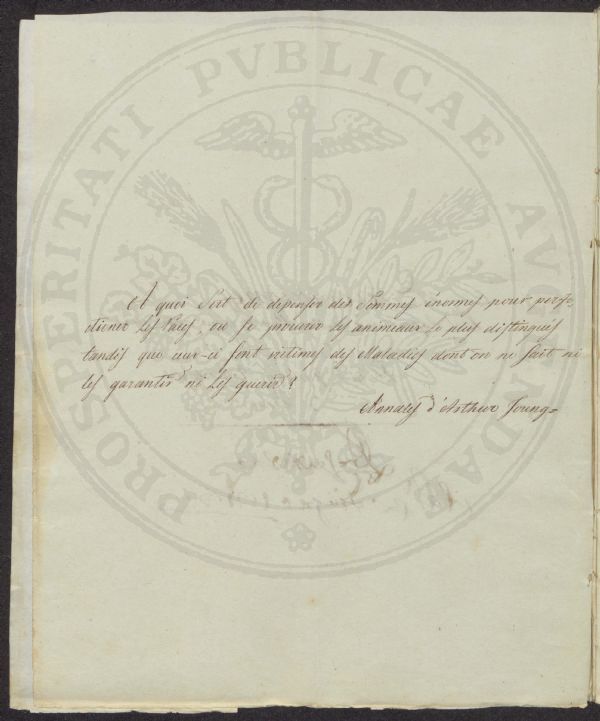 PROSPERITATI PVBLICAE AVGENDAE
A quoi sert de depenser des Sommes énormes pour perfe-
ctioner les races, ou se procurer les animeaux le plus distingués
tandis que ceux-ci sont victimes des Maladies dont on ne sait ni
les garantir ni les guerir?
Annales d'Arthur Young-